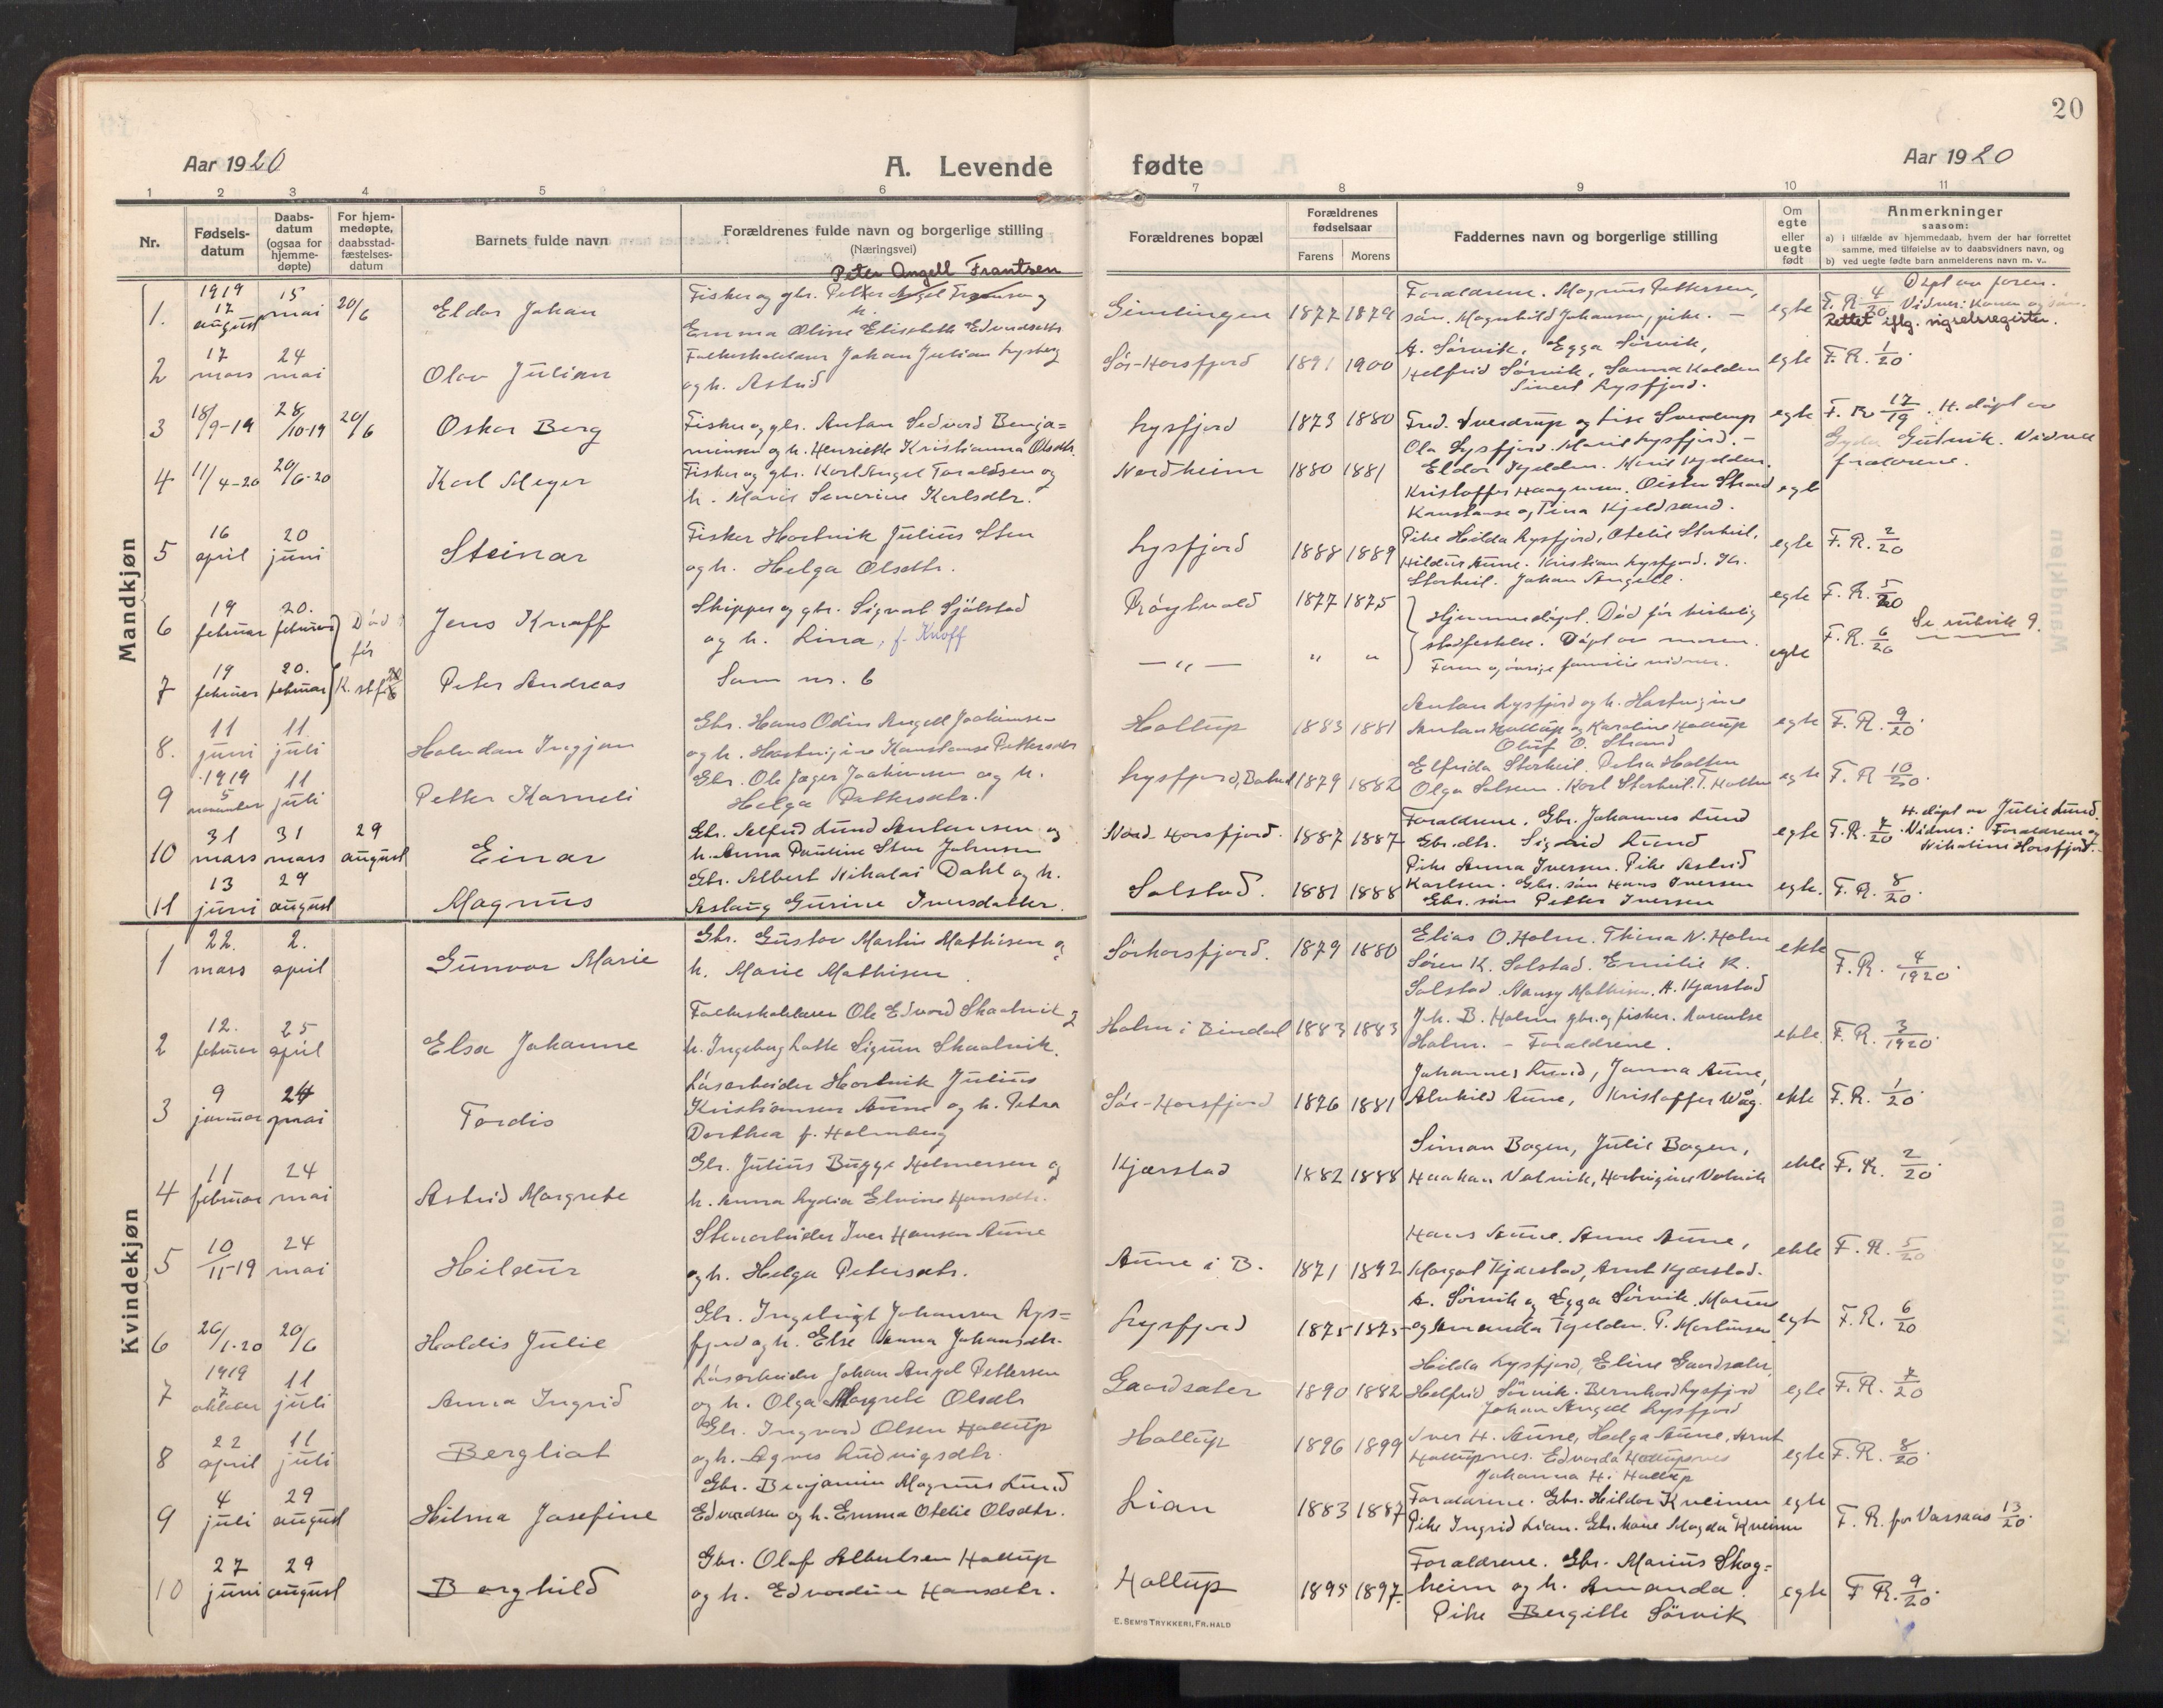 20
Aar 1920
A. Levende fødte
Aar 1920
1 2 3 4 5 6 7 8 9 10 11
Nr.
Fødsels-
datum
Daabs-
datum
(ogsaa for
hjemme-
døpte)
For hjem-
medøpte,
daabsstad-
fæstelses-
datum
Barnets fulde navn
Forældrenes fulde navn og borgerlige stilling
(Næringsvei)
Forældrenes bopæl
Forældrenes
fødselsaar
Farens Morens
Faddernes navn og borgerlige stilling
Om
egte
eller
uegte
født
Anmerkninger
saasom:
a) i tilfælde av hjemmedaab, hvem der har forrettet
samme, med tilføielse av to daabsvidners navn, og
b) ved uegte fødte barn anmelderens navn m. v..
Mandkjøn
Peter Angell Frantzen
1. 1919 17 august 15 mai 20/6 Eldor Johan
Fisker og gbr. Petter Angel Fransen og
h. Emma Oline Elisabeth Edvardsdtr
Gimlingen 1877 1879
Forældrene. Magnus Pettersen,
søn. Magnhild Johansen, pike. —
egte F. R. 4/20 Døpt av faren.
Vidner: Konen og søn.
Rettet iflg. vigselsregister.
2 17 mars 24 mai Olav Julian
Folkeskolelærer Johan Julian Lysberg
og h. Astrid
Sør-Horsfjord 1891 1900
A. Sørvik, Egga Sørvik,
Helfrid Sørvik, Sanna Kolden
Sivert Lysfjord.
egte F. R. 1/20.
3 18/9-19 28/10-19 20/6 Oskar Berg
Fisker og gbr. Anton Sedvard Benja=
minsen og h. Henriette Kristianna Olsdtr.
Lysfjord 1873 1880
Fred. Sverdrup og Lise Sverdrup
Ola Lysfjord. Marie Lysfjord. —
egte F. R. 17/19. H. døpt av
Gyda Gutvik. Vidner
forældrene.
4 11/4-20 20/6-20 Karl Meyer
Fisker og gbr. Karl Angel Toraldsen og
h. Marie Severine Karlsdtr.
Nordheim 1880 1881
Eldor Kjelden.
Kristoffer Haagensen. Oistein Strand
Konstanse og Tina Kjeldsand.
egte
5 16 april 20 juni Steinar
Fisker Hartvik Julius Sten
og h. Helga Olsdtr.
Lysfjord 1888 1889
Pike Hilda Lysfjord, Otelie Storheil,
Hildur Aune. Kristian Lysfjord. Kr.
Storheil. Johan Angell.
egte F. R. 2/20
6 19 februar 20. februar Død før Jens Knoff
Skipper og gbr. Sigvart Sjølstad
og h. Lina, f. Knoff
Røytvold 1877 1875
Hjemmedøpt. Død før kirkelig
stadfestelse. Døpt av moren.
Faren og øvrige familie vidner.
egte F. R. 5/20
Se rubrik 9.
7 19 februar 20. februar K. stf. 20/6 Peter Andreas
Som nr. 6
— " — " "
egte F. R. 6/20
8. 11 juni 11 juli Halvdan Ingjan
Gbr. Hans Odin Angell Joakimsen
og h. Hartvigine Konstanse Pettersdtr
Holtup 1883 1881
Anton Lysfjord og h. Hartvigine
Anton Holtup og Karoline Holtup
Oluf O. Strand
egte F. R. 9/20.
9 1919 5 november 11 juli Petter Korneli
Gbr. Ole Jæger Joakimsen og h.
Helga Pettersdtr.
Lysfjord, Bohed 1879 1882
Elfrida Storheil. Petra Holten
Olga Solsem. Karl Storheil. T. Holten
egte F. R. 10/20.
10 31 mars 31 mars 29 august Einar
Gbr. Alfred Lund Antonsen og
h. Anna Pauline Sten Johnsen
Nord-Horsfjord. 1887 1887
Forældrene. Gbr. Johannes Lund
Gbr.dtr. Sigrid Lund
egte F. R. 7/20. H. døpt av Julie Lund.
Vidner: Forældrene og
Nikoline Horsfjord.
11 13 juni 29 august Magnus
Gbr. Albert Nikolai Dahl og h.
Aslaug Gurine Iversdatter.
Solstad. 1881 1888
Pike Anna Iversen. Pike Astrid
Karlsen. Gbr. søn Hans Iversen
Gbr. søn Petter Iversen
egte. F. R. 8/20.
Kvindekjøn
1 22. mars 2. april Gunvor Marie
Gbr. Gustav Martin Mathisen og
h. Marie Mathisen
Sørhorsfjord. 1879 1880
Elias O. Holm. Thina N. Holm
Søren K. Solstad. Emilie K.
Solstad. Nansy Mathisen. A. Kjærstad
ekte F. R. 4/1920.
2 12. februar 25 april Elsa Johanne
Folkeskolelærer Ole Edvard Skaalvik og
h. Ingeborg Lotte Sigrun Skaalvik.
Holm i Bindal 1883 1883
J. h. B. Holm gbr. og fisker. Laurentse
Holm. — Forældrene.
ekte. F. R. 3/1920.
3 9 januar 24 mai Tordis
Løsarbeider Hartvik Julius
Kristiansen Aune og h. Petra
Dorthea f. Holmberg
Sør-Horsfjord 1876 1881
Johannes Lund, Janna Aune,
Alvhild Aune, Kristoffer Wåg.
ekte F. R. 1/20.
4 11 februar 24 mai Astrid Margrete
Gbr. Julius Bugge Helmersen og
h. Anna Lydia Elvine Hansdtr.
Kjærstad 1882 1888
Simon Bogen, Julie Bogen,
Haakon Valvik, Hartvigine Valvik
ekte F. R. 2/20.
5 10/11-19 24 mai Hildur
Stenarbeider Iver Hansen Aune
og h. Helga Petersdtr.
Aune i B. 1871 1892
Hans Aune. Anne Aune,
Margot Kjærstad, Arnt Kjærstad.
ekte F. R. 5/20
6 26/1-20 20/6 Haldis Julie
Gbr. Ingebrigt Johansen Lys=
fjord og h. Else Anna Johansdtr.
Lysfjord 1875 1875
A. Sørvik og Egga Sørvik. Marius
og Amanda Kjelden. P. Martinsen
egte F. R. 6/20
7 1919 7 oktober 11 juli Anna Ingrid
Løsarbeider Johan Angel Pettersen
og h. Olga Margrete Olsdtr
Gaardsæter 1890 1882
Hilda Lysfjord, Eline Gaardsæter,
Helfrid Sørvik. Bernhard Lysfjord
Johan Angell Lysfjord
egte F. R. 7/20
8 22 april 11 juli Bergliot
Gbr. Ingvard Olsen Holtup
og h. Agnes Ludvigsdtr.
Holtup 1896 1899
Iver H. Aune, Helga Aune, Arnt
Holtupnes. Edvarda Holtupnes
Johanna H. Holtup
egte F. R. 8/20.
9 4 juli 29 august Hilma Josefine
Gbr. Benjamin Magnus Lund
Edvardsen og h. Emma Otelie Olsdtr.
Lian 1883 1887
Forældrene. Gbr. Hildor Kveinen
Pike Ingrid Lian. Gbr.kone Magda Kveinen
egte F. R. for Vassaas 13/20.
10 27 juni 29 august Borghild
Gbr. Olaf Albertsen Holtup
og h. Edvardine Hansdtr.
Holtup 1895 1897.
Forældrene. Gbr. Marius Skog=
heim og h. Amanda.
Pike Bergitte Sørvik
egte F R. 9/20.
E. SEM'S TRYKKERI, FR.HALD